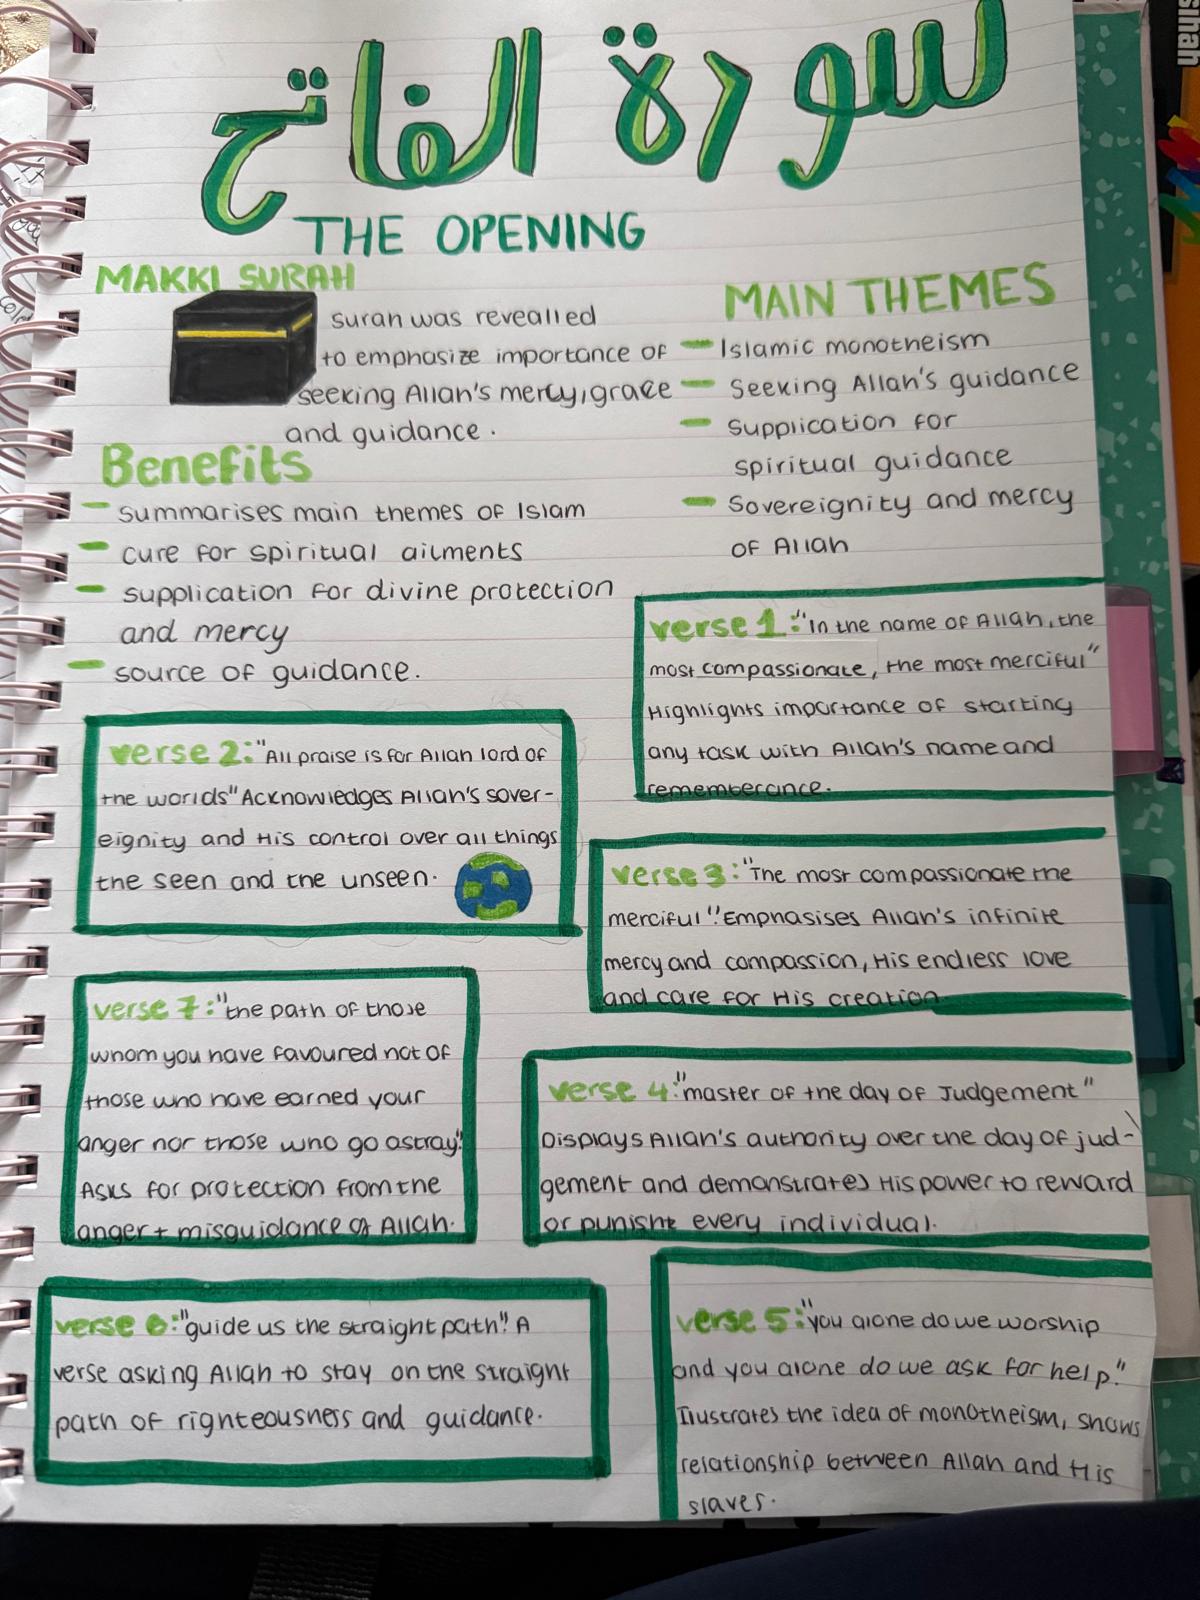 سورة الفاتح
THE OPENING
MAKKI SURAH
surah was revealled
to emphasize importance of
seeking Allah's mercy, grace
and guidance.
MAIN THEMES
- Islamic monotheism
- Seeking Allah's guidance
- Supplication for
spiritual guidance
- Sovereignity and mercy
of Allah
Benefits
- summarises main themes of Islam
- cure for spiritual ailments
- supplication for divine protection
and mercy
- source of guidance.
verse 1: "In the name of Allah, the
most compassionate, the most merciful"
Highlights importance of starting
any task with Allah's name and
rememberance.
verse 2: "All praise is for Allah lord of
the worlds" Acknowledges Allah's sover-
eignity and His control over all things
the seen and the unseen.
verse 3: "The most compassionate the
merciful". Emphasises Allah's infinite
mercy and compassion, His endless love
and care for His creation
verse 4: "master of the day of Judgement"
Displays Allah's authority over the day of jud-
gement and demonstrates His power to reward
or punish every individual.
verse 5: "you alone do we worship
and you alone do we ask for help."
Ilustrates the idea of monotheism, shows
relationship between Allah and His
slaves.
verse 6: "guide us the straight path". A
verse asking Allah to stay on the straight
path of righteousness and guidance.
verse 7: "the path of those
whom you have favoured not of
those who have earned your
anger nor those who go astray".
Asks for protection from the
anger + misguidance of Allah.